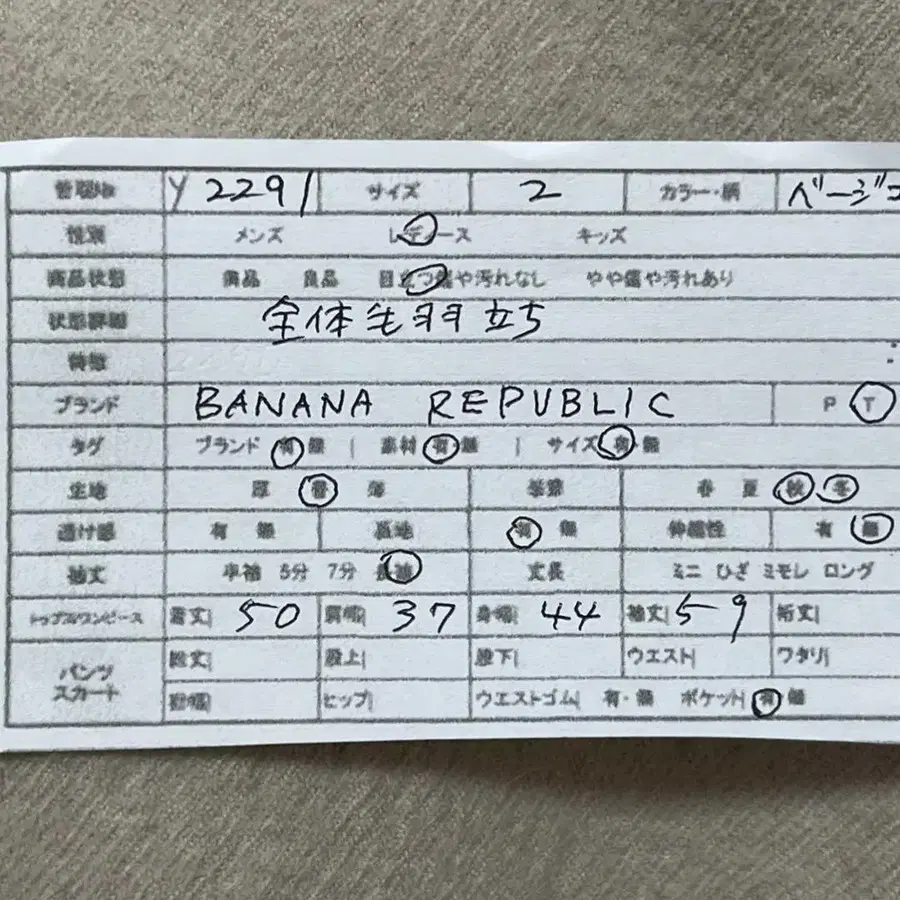 管理No Y2291 サイズ 2 カラー・柄 ベージュ
性別 メンズ レディース キッズ
商品状態 美品 良品 目立つ傷や汚れなし やや傷や汚れあり
状態詳細 全体毛羽立ち
特徴
ブランド BANANA REPUBLIC P T
タグ ブランド 有 無 | 素材 有・無 | サイズ 有 無
生地 厚 普 薄 季節 春 夏 秋 冬
透け感 有 無 裏地 有 無 伸縮性 有 無
袖丈 半袖 5分 7分 長袖 丈長 ミニ ひざ ミモレ ロング
トップス/ワンピース 着丈| 50 肩幅| 37 身幅| 44 袖丈| 59 裄丈|
パンツ スカート 総丈| 股上| 股下| ウエスト| ワタリ|
裾幅| ヒップ| ウエストゴム| 有・無 ポケット| 有 無